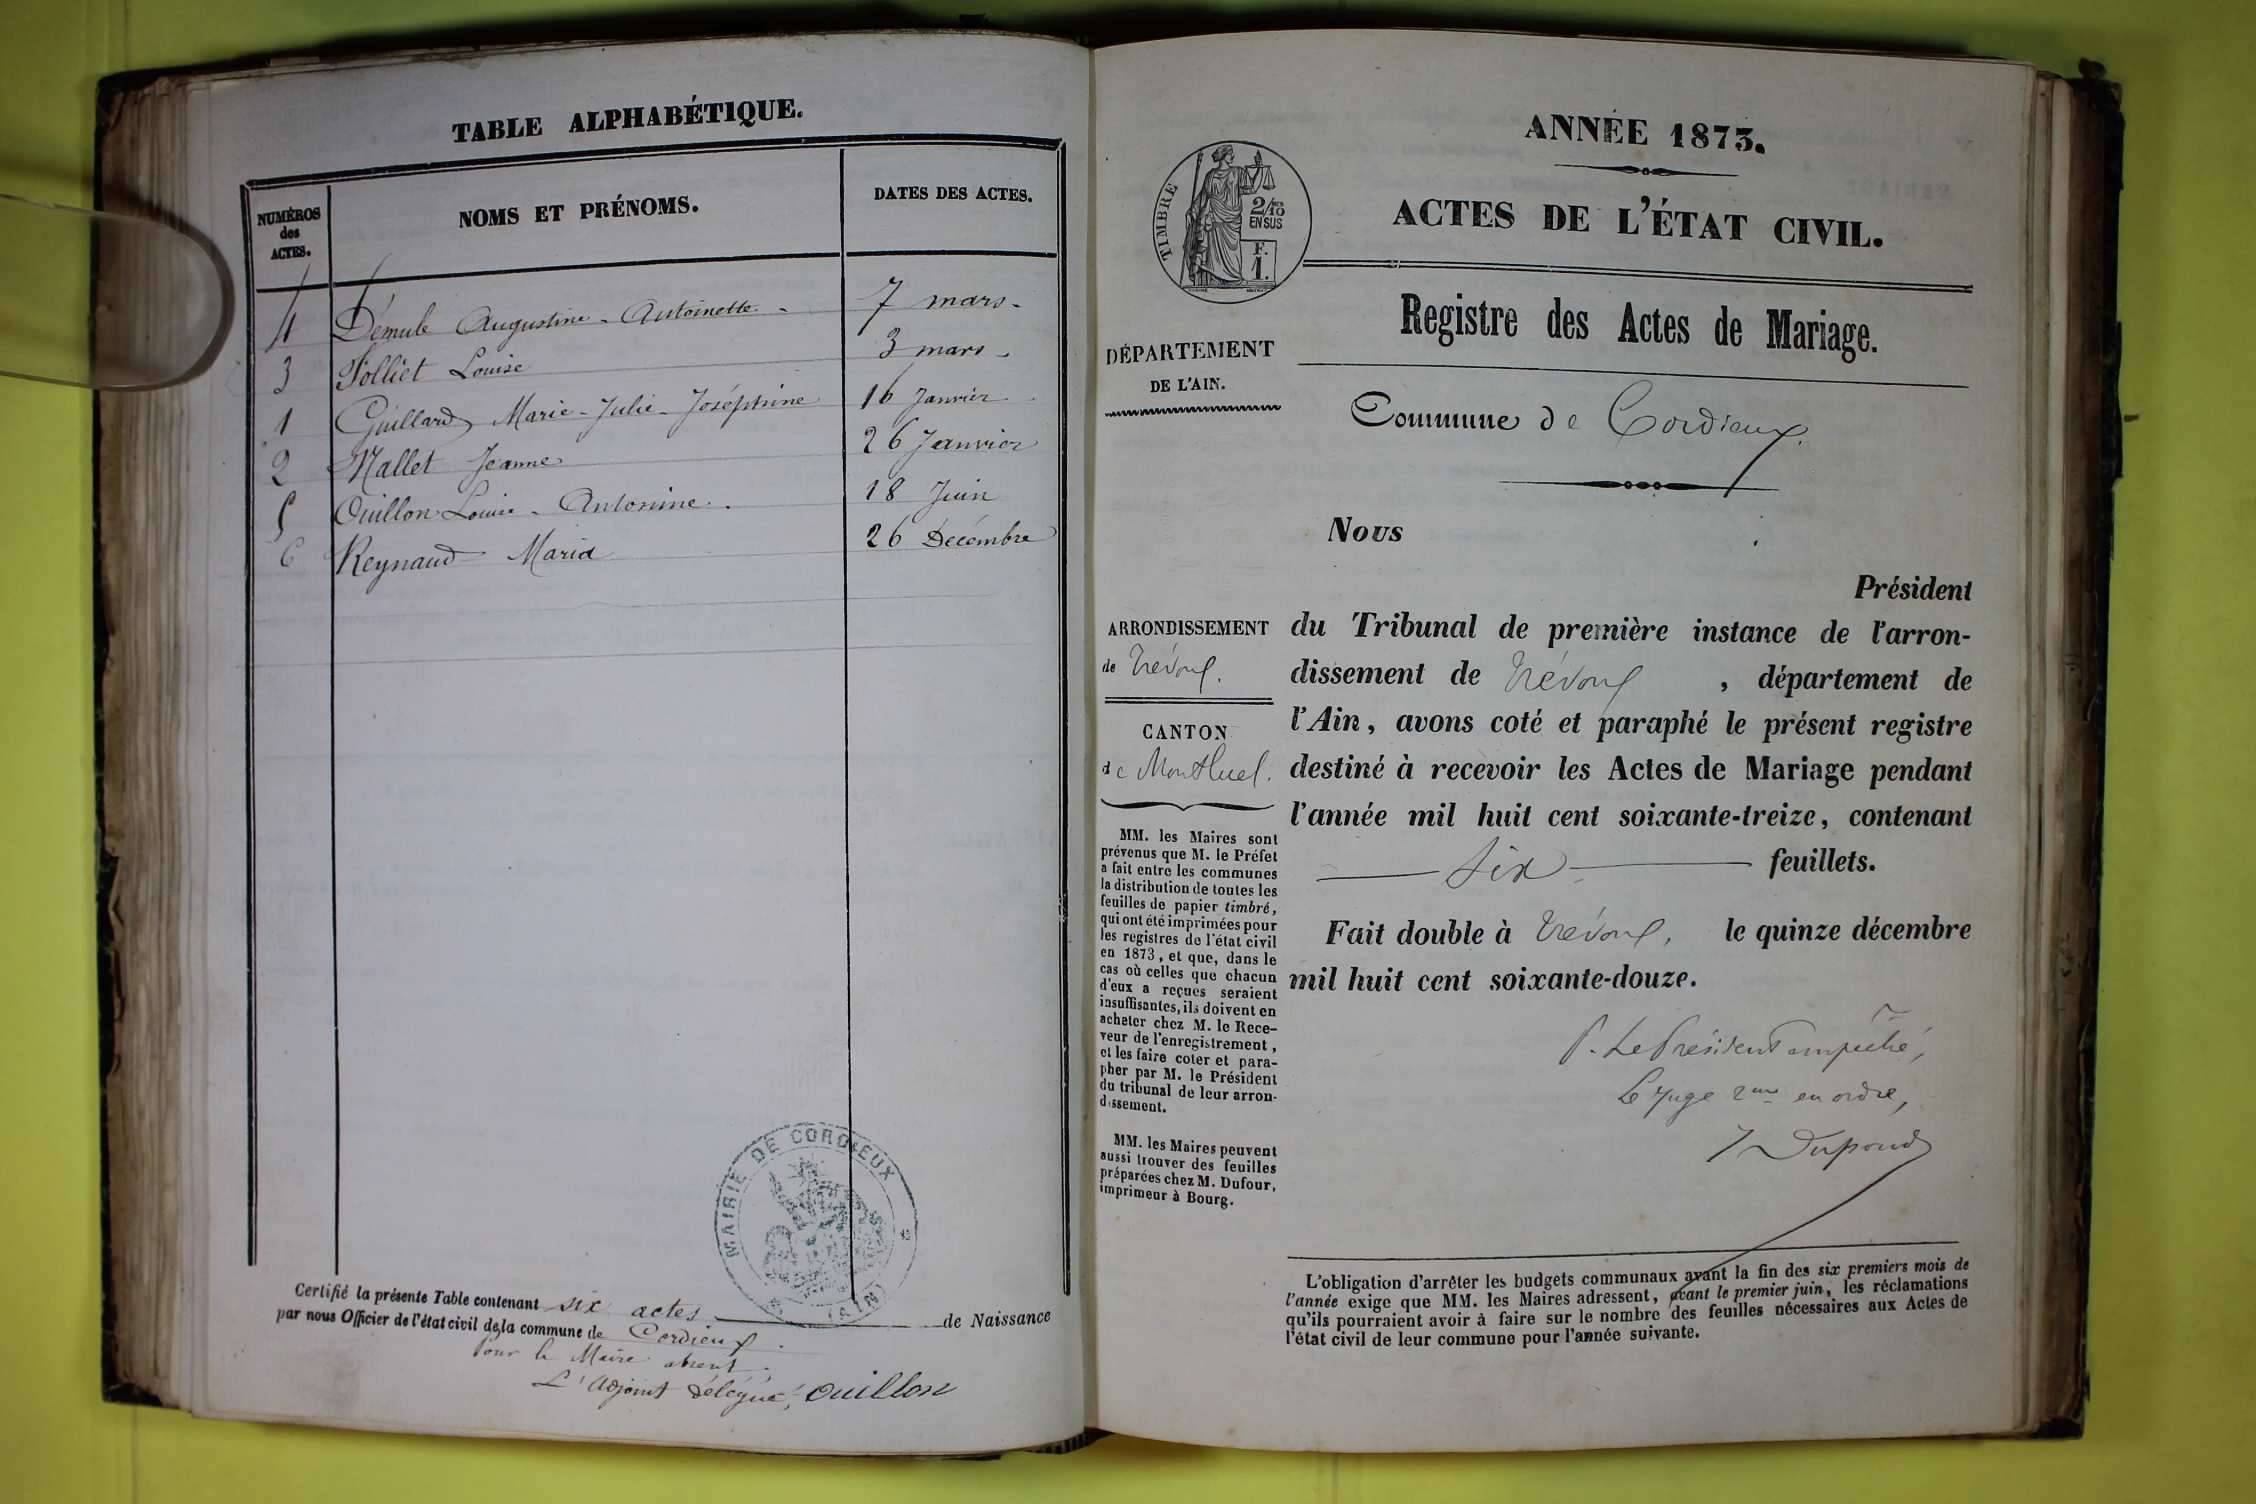 TABLE ALPHABÉTIQUE.
NUMÉROS des ACTES.
NOMS ET PRÉNOMS.
DATES DES ACTES.
4 Démule Augustine - Antoinette - 7 mars -
3 Folliet Louise 3 mars -
1 Guillard Marie - Julie - Joséphine 16 Janvier
2 Mallet Jeanne 26 Janvier
5 Ouillon Louise - Antonine . 18 Juin
6 Reynaud Maria 26 Décembre
MAIRIE DE CORDIEUX
(AIN)
Certifié la présente Table contenant six actes de Naissance
par nous Officier de l'état civil de la commune de Cordieux.
Pour le Maire absent.
L'Adjoint délégué, Ouillon
ANNÉE 1873.
TIMBRE
2/10
EN SUS
F.
1.
ACTES DE L'ÉTAT CIVIL.
Registre des Actes de Mariage.
DÉPARTEMENT
DE L'AIN.
Commune de Cordieux.
Nous
Président
ARRONDISSEMENT
de Trévoux.
CANTON
de Montluel.
du Tribunal de première instance de l'arron-
dissement de Trévoux , département de
l'Ain, avons coté et paraphé le présent registre
destiné à recevoir les Actes de Mariage pendant
l'année mil huit cent soixante-treize, contenant
six feuillets.
Fait double à Trévoux, le quinze décembre
mil huit cent soixante-douze.
P. Le Président empêché,
Le Juge 2me en ordre,
J Dupond
MM. les Maires sont
prévenus que M. le Préfet
a fait entre les communes
la distribution de toutes les
feuilles de papier timbré,
qui ont été imprimées pour
les registres de l'état civil
en 1873, et que, dans le
cas où celles que chacun
d'eux a reçues seraient
insuffisantes, ils doivent en
acheter chez M. le Rece-
veur de l'enregistrement,
et les faire coter et para-
pher par M. le Président
du tribunal de leur arron-
dissement.
MM. les Maires peuvent
aussi trouver des feuilles
préparées chez M. Dufour,
imprimeur à Bourg.
L'obligation d'arrêter les budgets communaux avant la fin des six premiers mois de
l'année exige que MM. les Maires adressent, avant le premier juin, les réclamations
qu'ils pourraient avoir à faire sur le nombre des feuilles nécessaires aux Actes de
l'état civil de leur commune pour l'année suivante.